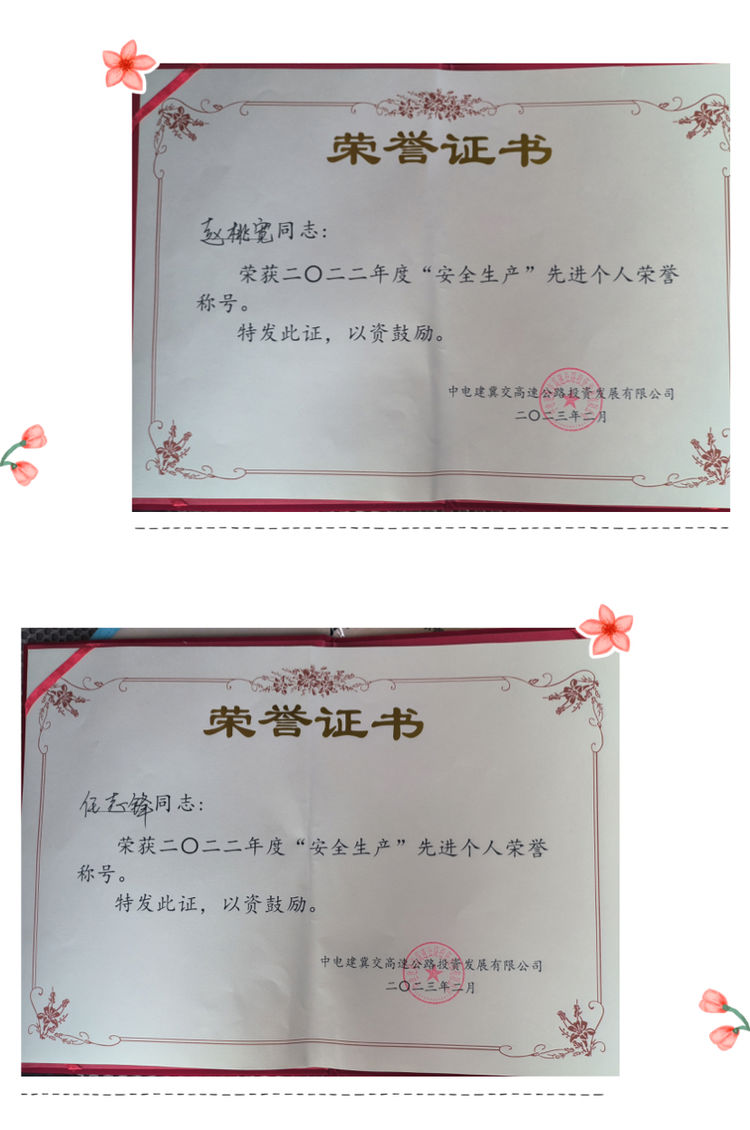 荣誉证书
赵桃宽同志：
荣获二〇二二年度“安全生产”先进个人荣誉
称号。
特发此证，以资鼓励。
中电建冀交高速公路投资发展有限公司
二〇二三年二月
荣誉证书
任志锋同志：
荣获二〇二二年度“安全生产”先进个人荣誉
称号。
特发此证，以资鼓励。
中电建冀交高速公路投资发展有限公司
二〇二三年二月